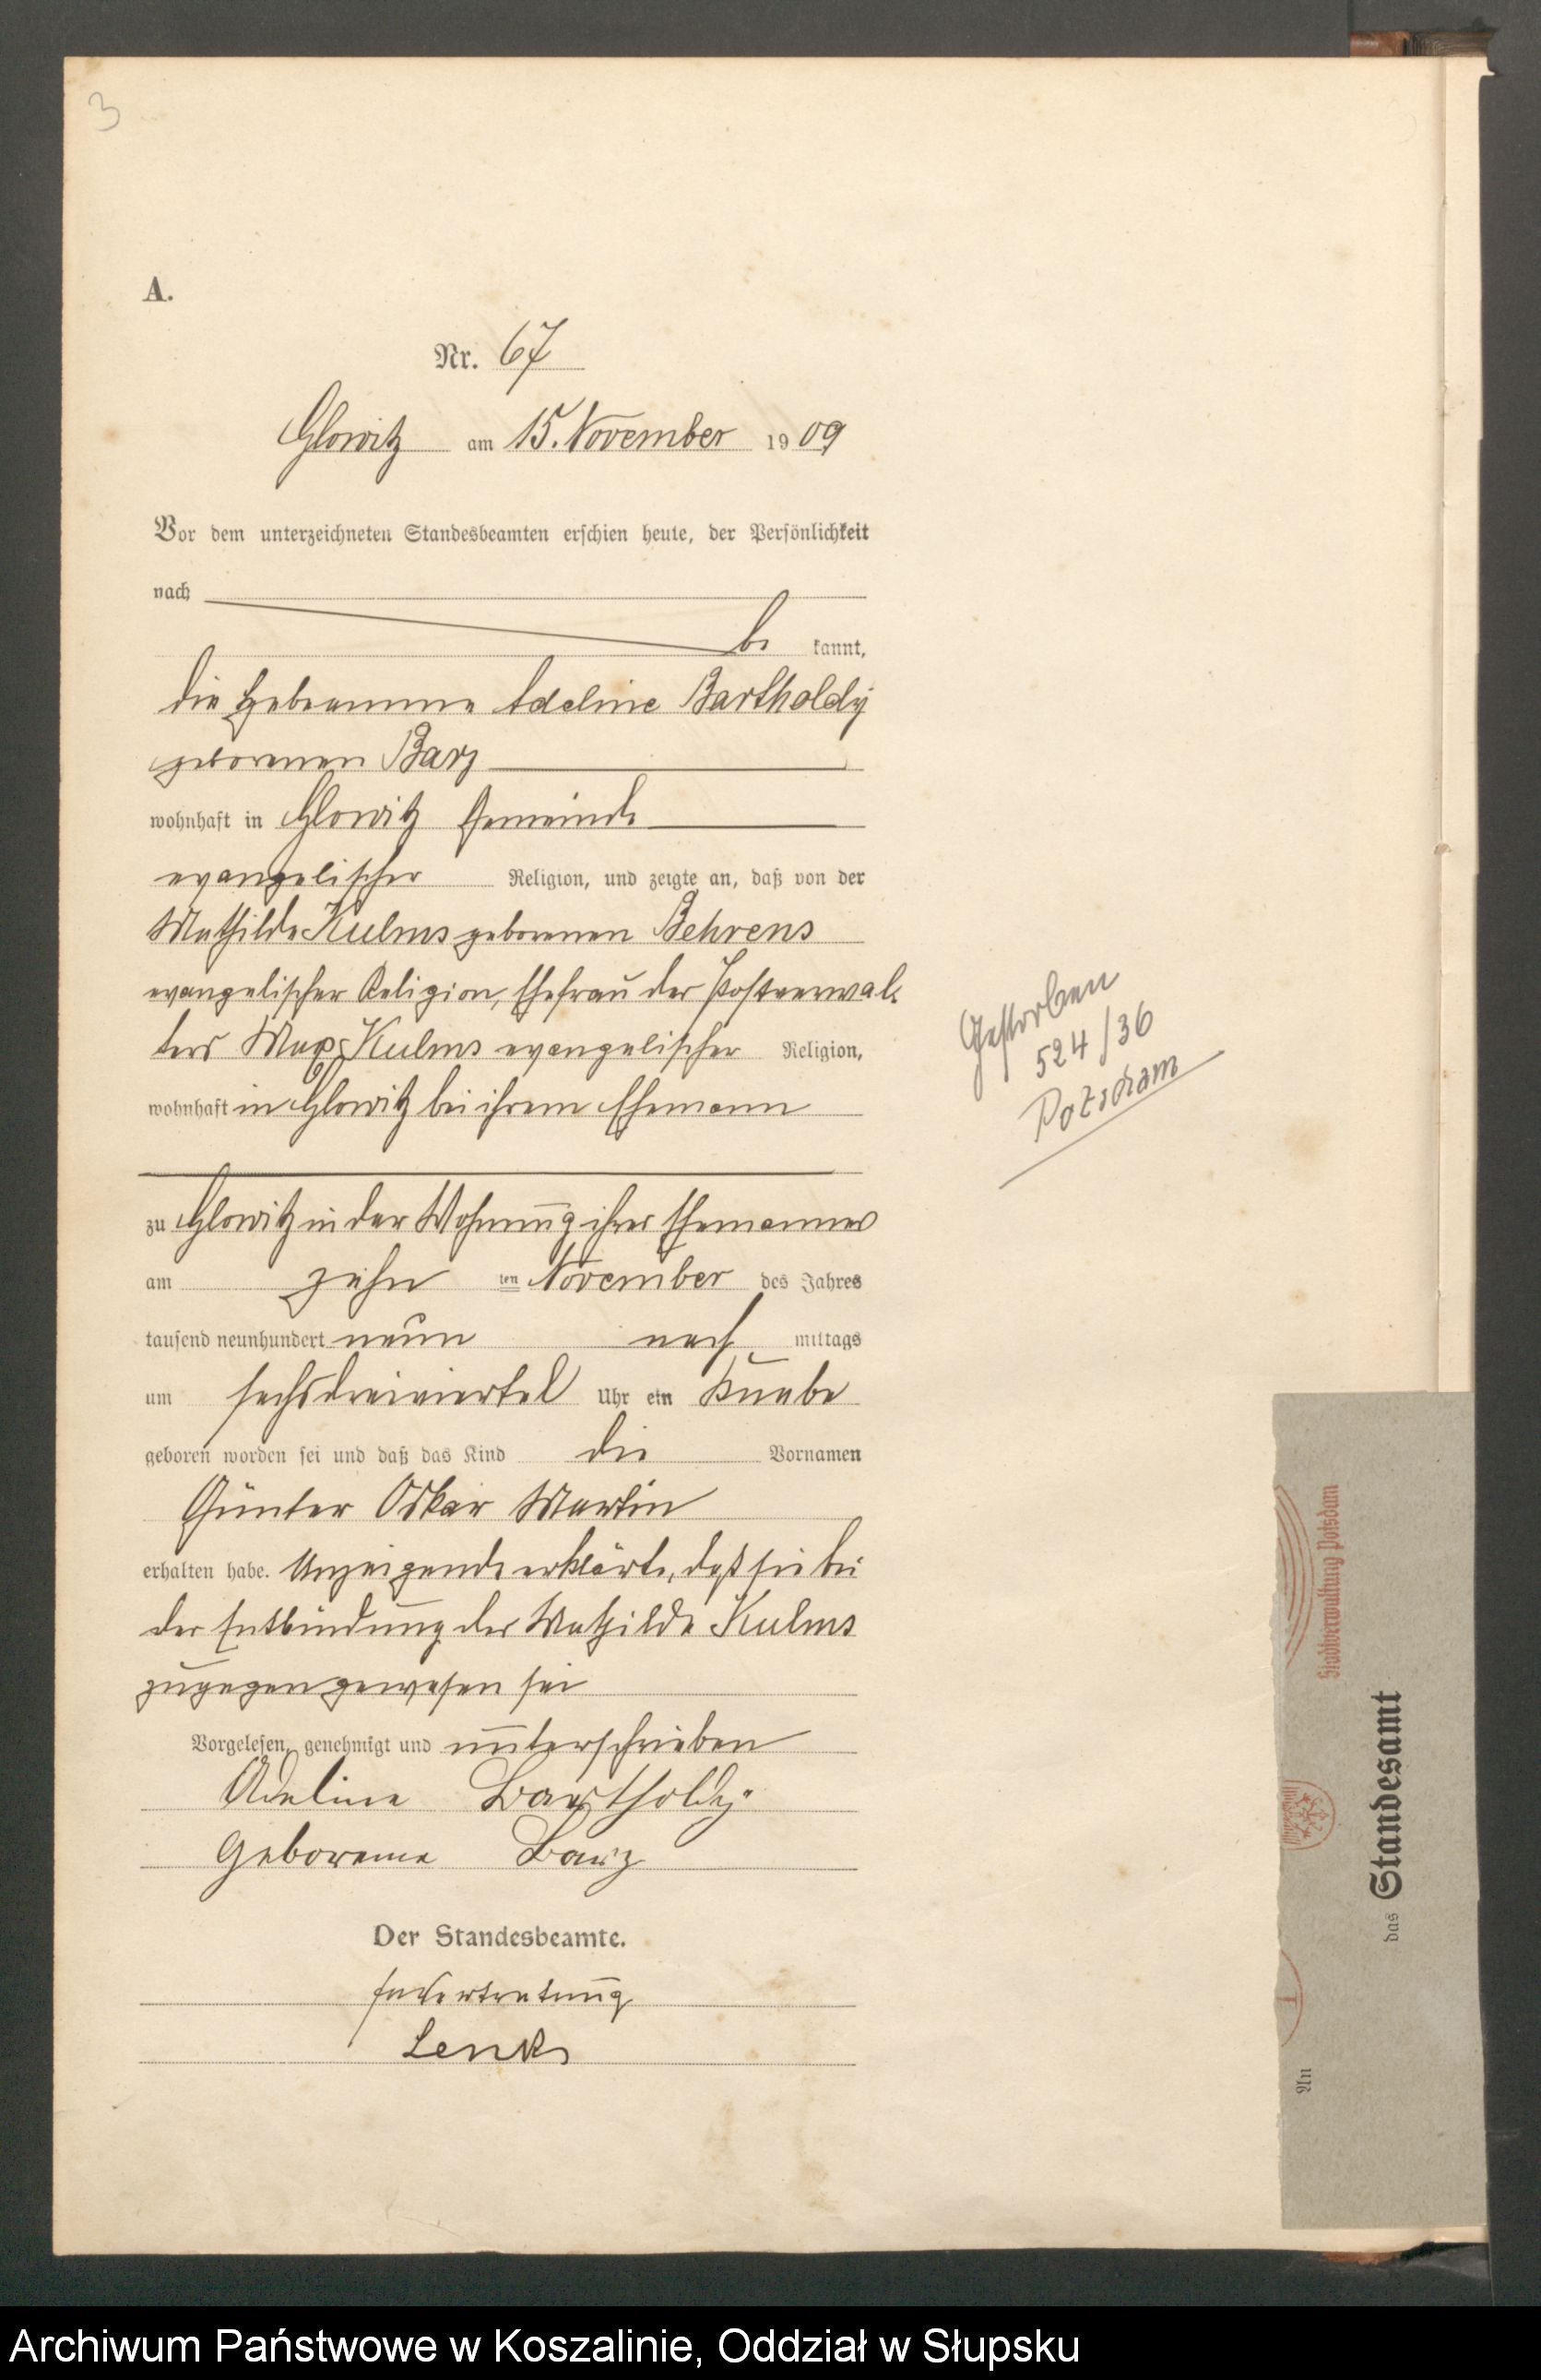 3
A.
Nr. 67
Glowitz am 15. November 1909
Vor dem unterzeichneten Standesbeamten erschien heute, der Persönlichkeit
nach
be kannt,
die Hebeamme Adeline Bartholdy
geborenen Barz
wohnhaft in Glowitz Gemeinde
evangelischer Religion, und zeigte an, daß von der
Mathilde Kulms geborenen Behrens
evangelischer Religion, Ehefrau des Postverwal-
ters Max Kulms evangelischer Religion,
wohnhaft in Glowitz bei ihrem Ehemann
zu Glowitz in der Wohnung ihres Ehemannes
am zehn ten November des Jahres
tausend neunhundert neun nach mittags
um sechsdreiviertel Uhr ein Knabe
geboren worden sei und daß das Kind die Vornamen
Günter Oskar Martin
erhalten habe. Anzeigende erklärte, daß sie bei
der Entbindung der Mathilde Kulms
zugegen gewesen sei
Vorgelesen, genehmigt und unterschrieben
Adeline Bartholdy
Geborene Barz
Der Standesbeamte.
In Vertretung
Lenk
Gestorben
524/36
Potsdam
Stadtverwaltung Potsdam
das Standesamt
An
Archiwum Państwowe w Koszalinie, Oddział w Słupsku